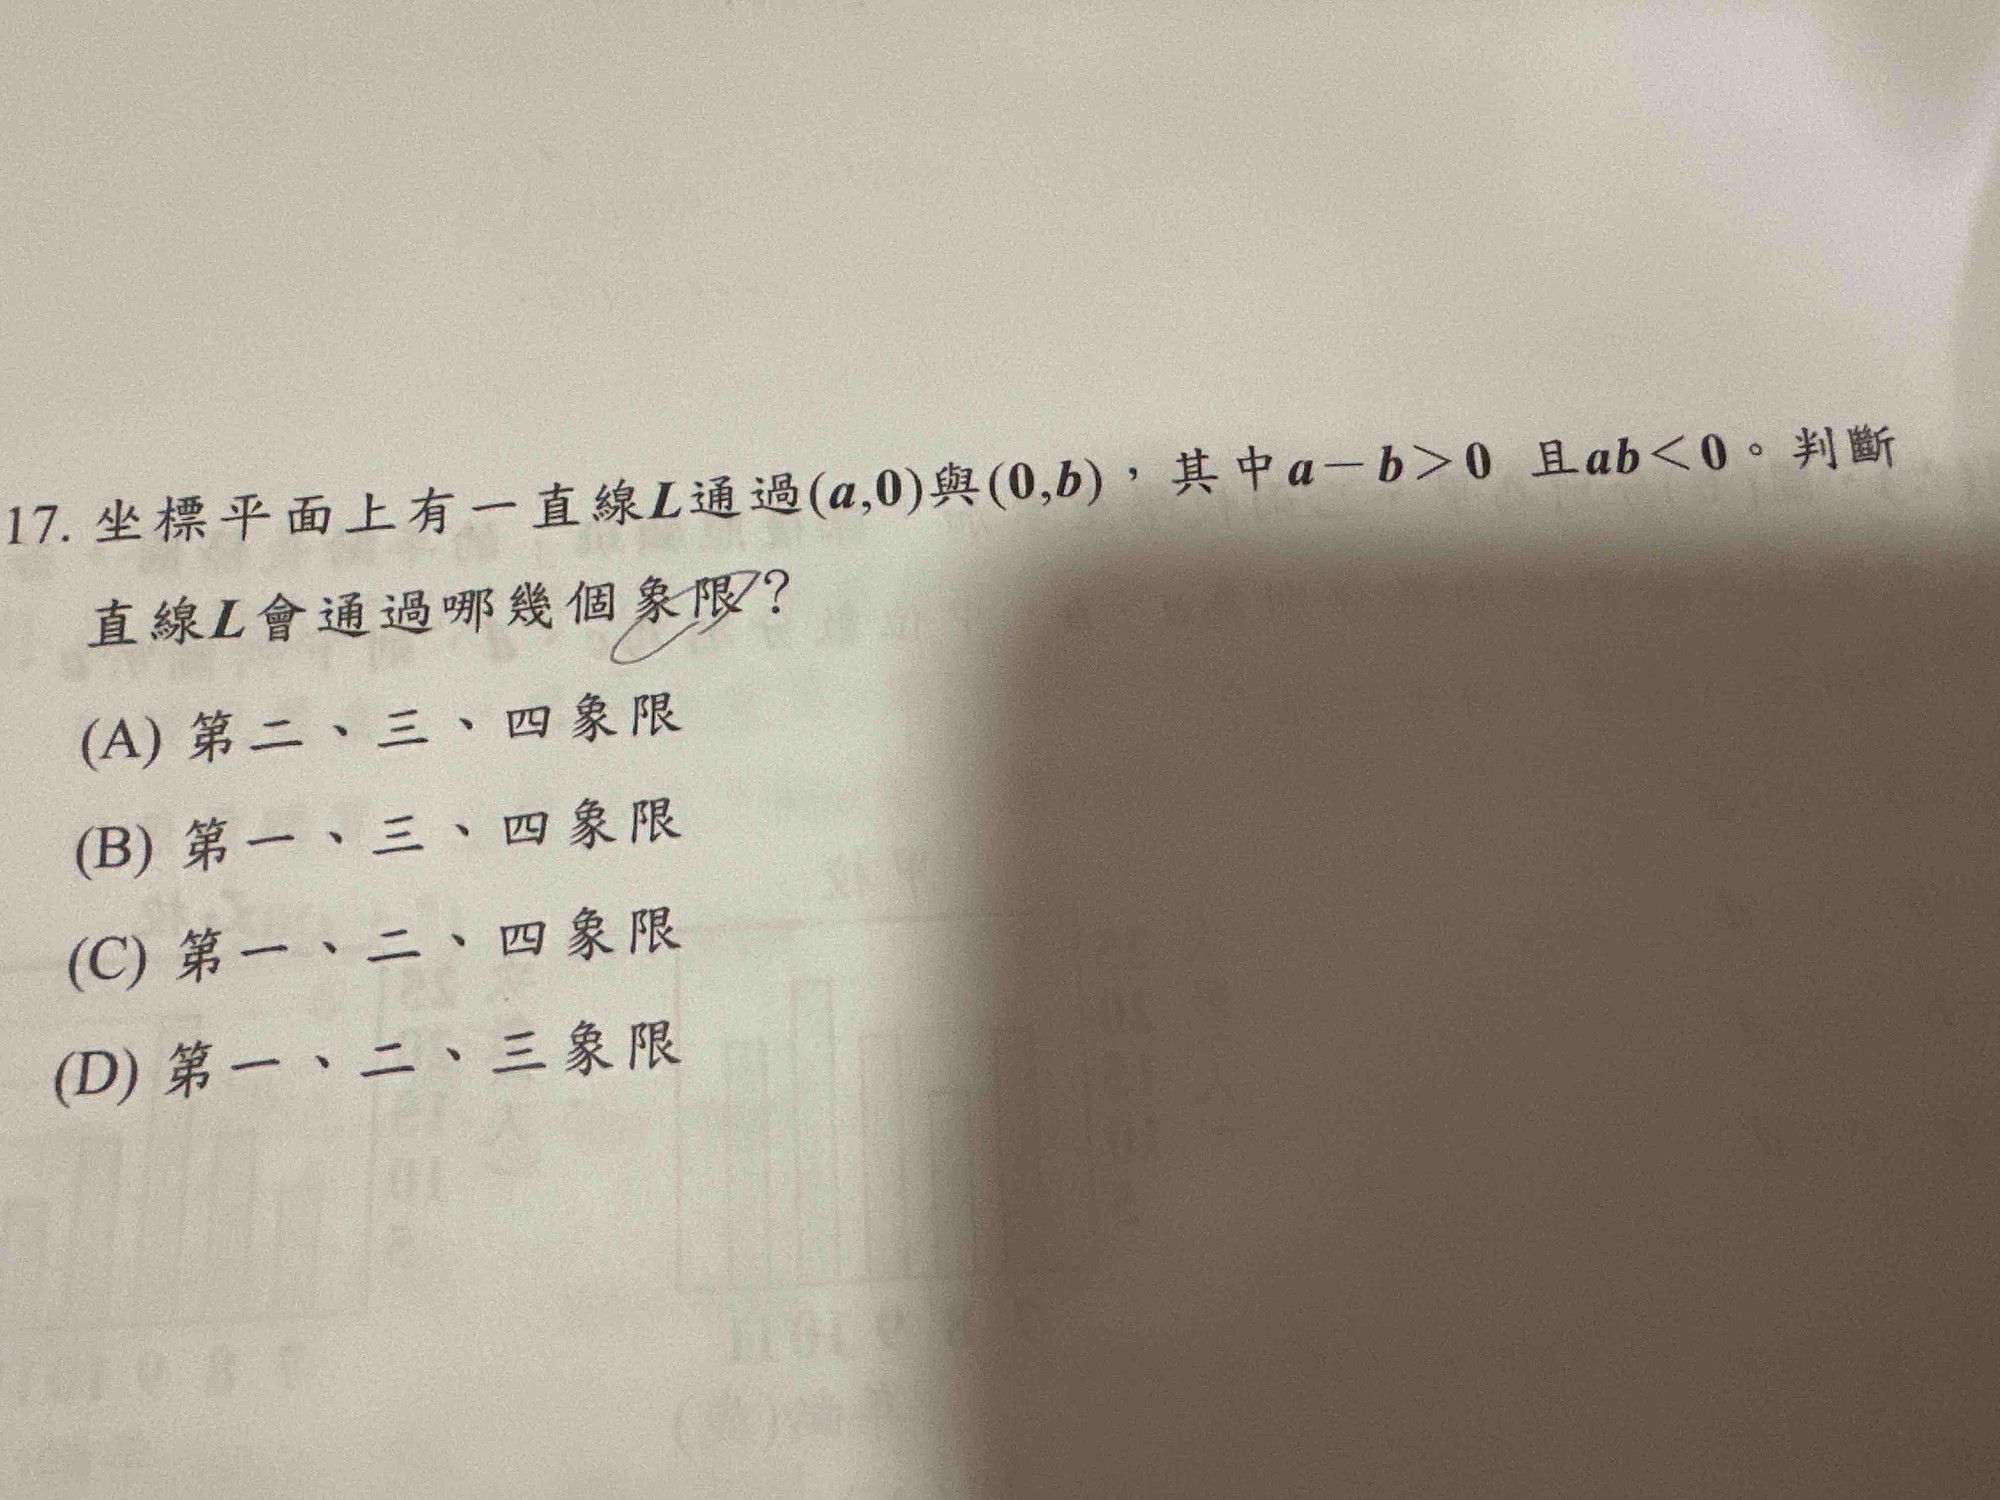 17. 坐標平面上有一直線L通過(a,0)與(0,b)，其中a－b＞0 且ab＜0。判斷
直線L會通過哪幾個象限？
(A) 第二、三、四象限
(B) 第一、三、四象限
(C) 第一、二、四象限
(D) 第一、二、三象限